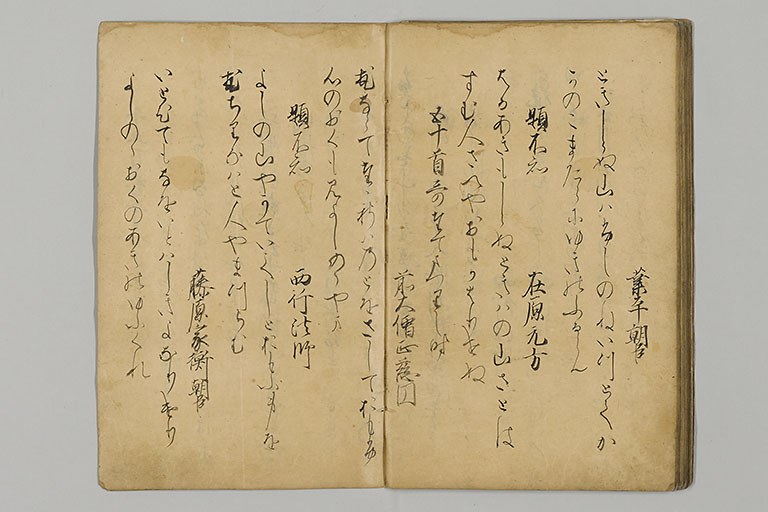 業平朝臣
ときしらぬ山はふしのねいつとてか
かのこまたらにゆきのふるらん
題不知　在原元方
はるあきもしらぬときはの山さとは
すむ人さへやおもかはりせぬ
五十首哥たてまつりし時
前大僧正慈円
花ならてたゝ柴の戸をさしておもふ
心のおくもみよしのゝやま
題不知　西行法師
よしの山やかていてしとおもふ身を
花ちりなはと人やまつらむ
藤原家衡朝臣
いとひてもなをいとはしきよなりけり
よしのゝおくのあきのゆふくれ